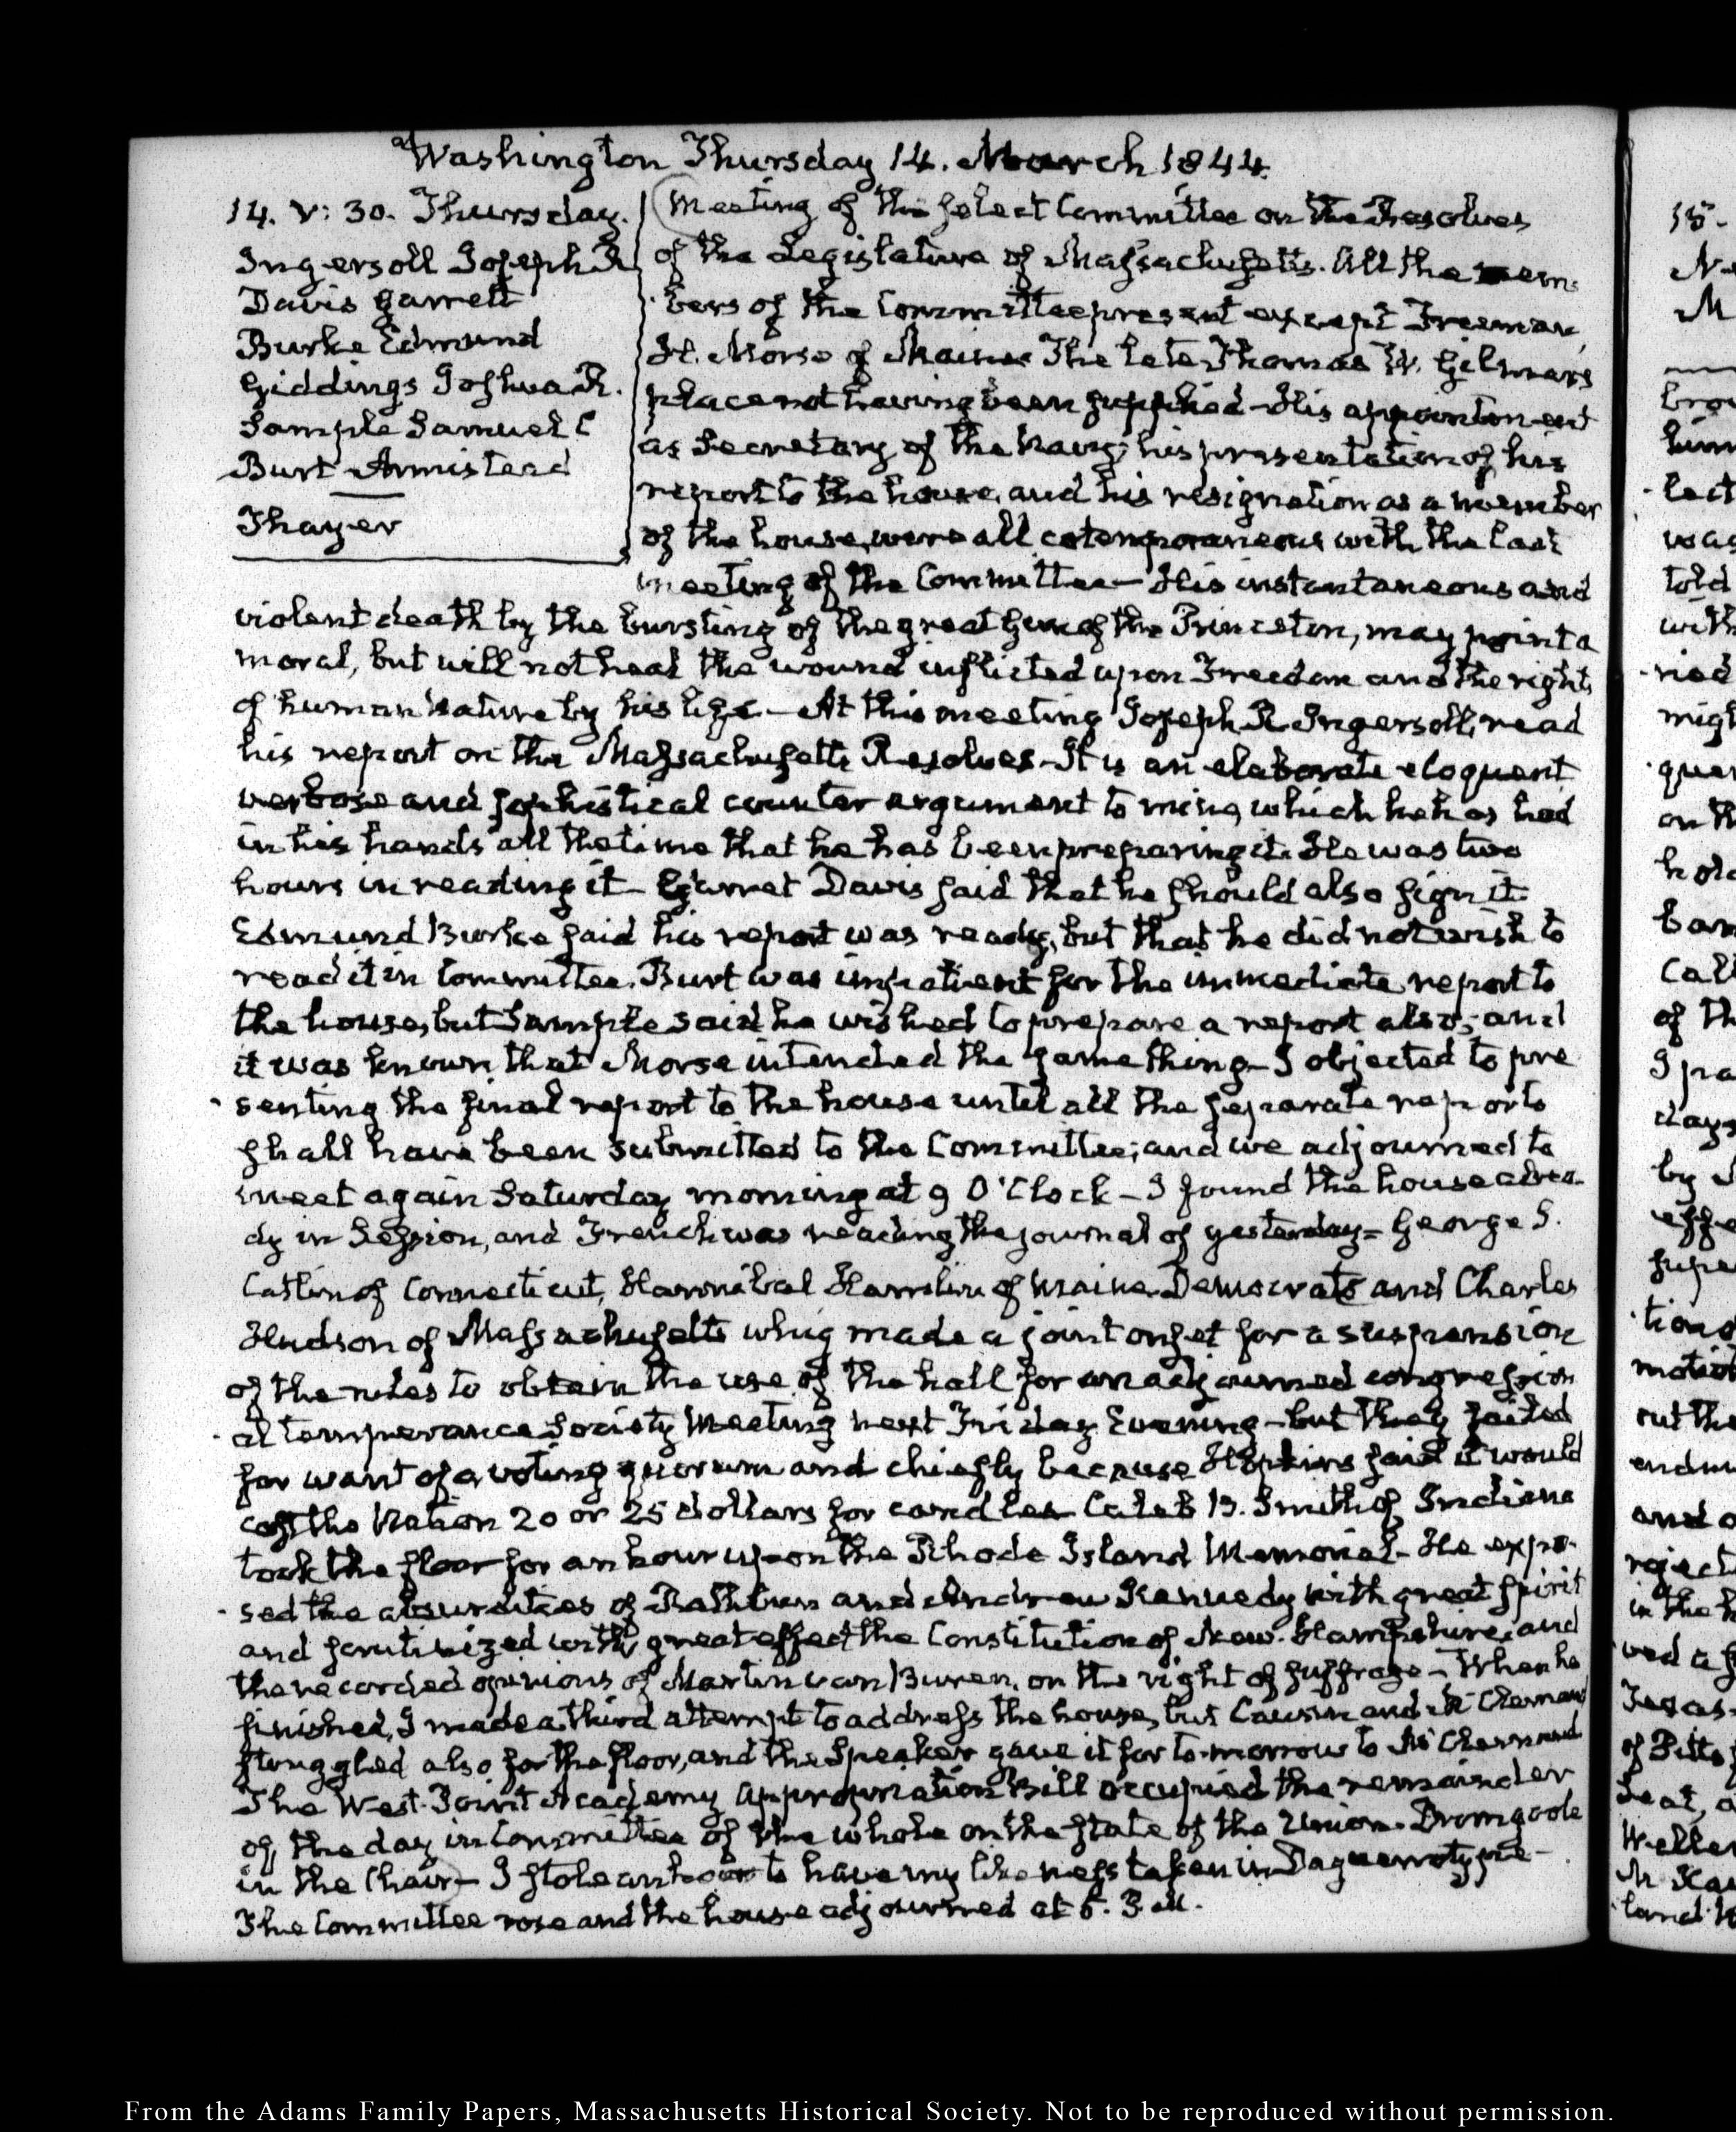 Washington Thursday 14. March 1844.
14. V: 30. Thursday.
Ingersoll Joseph R
Davis Garrett
Burke Edmund
Giddings Joshua R.
Sample Samuel C
Burt Armistead
Thayer
Meeting of the select Committee on the Resolves
of the Legislature of Massachusetts. All the mem-
bers of the Committee present except Freeman
H. Morse of Maine The late Thomas W. Gilmer's
place not having been supplied—His appointment
as Secretary of the Navy, his presentation of his
report to the house, and his resignation as a member
of the house, were all cotemporaneous with the last
meeting of the Committee—His instantaneous and
violent death by the bursting of the great gun of the Princeton, may point a
moral, but will not heal the wound inflicted upon Freedom and the rights
of human Nature by his life—At this meeting Joseph R Ingersoll, read
his report on the Massachusetts Resolves—It is an elaborate eloquent
verbose and sophistical counter argument to mine, which he has had
in his hands all the time that he has been preparing it. He was two
hours in reading it—Garret Davis said that he should also sign it
Edmund Burke said his report was ready, but that he did not wish to
read it in Committee. Burt was impatient for the immediate report to
the house, but Sample said he wished to prepare a report also; and
it was known that Morse intended the same thing—I objected to pre
senting the final report to the house until all the separate reports
shall have been submitted to the Committee; and we adjourned to
meet again Saturday morning at 9 O'Clock—I found the house alrea-
dy in Session, and French was reading the journal of yesterday—George S.
Catlin of Connecticut, Hannibal Hamlin of Maine Democrats and Charles
Hudson of Massachusetts whig made a joint onset for a suspension
of the rules to obtain the use of the hall for an adjourned congression
al temperance Society Meeting next Friday Evening—but they failed
for want of a voting quorum and chiefly because Hopkins said it would
cost the Nation 20 or 25 dollars for candles Caleb B. Smith of Indiana
took the floor for an hour upon the Rhode Island Memorial—He expo-
sed the absurdities of Rathbun and Andrew Kennedy with great spirit
and scrutinized with great effect the Constitution of New-Hampshire, and
the recorded opinions of Martin van Buren, on the right of suffrage—When he
finished, I made a third attempt to address the house, but Causin and McClernand
struggled also for the floor, and the Speaker gave it for to-morrow to McClernand
The West-Point Academy Appropriation Bill occupied the remainder
of the day in Committee of the whole on the state of the Union. Dromgoole
in the Chair—I stole an hour to have my likeness taken in Daguerrotype—
The Committee rose and the house adjourned at 5. P.M.
From the Adams Family Papers, Massachusetts Historical Society. Not to be reproduced without permission.